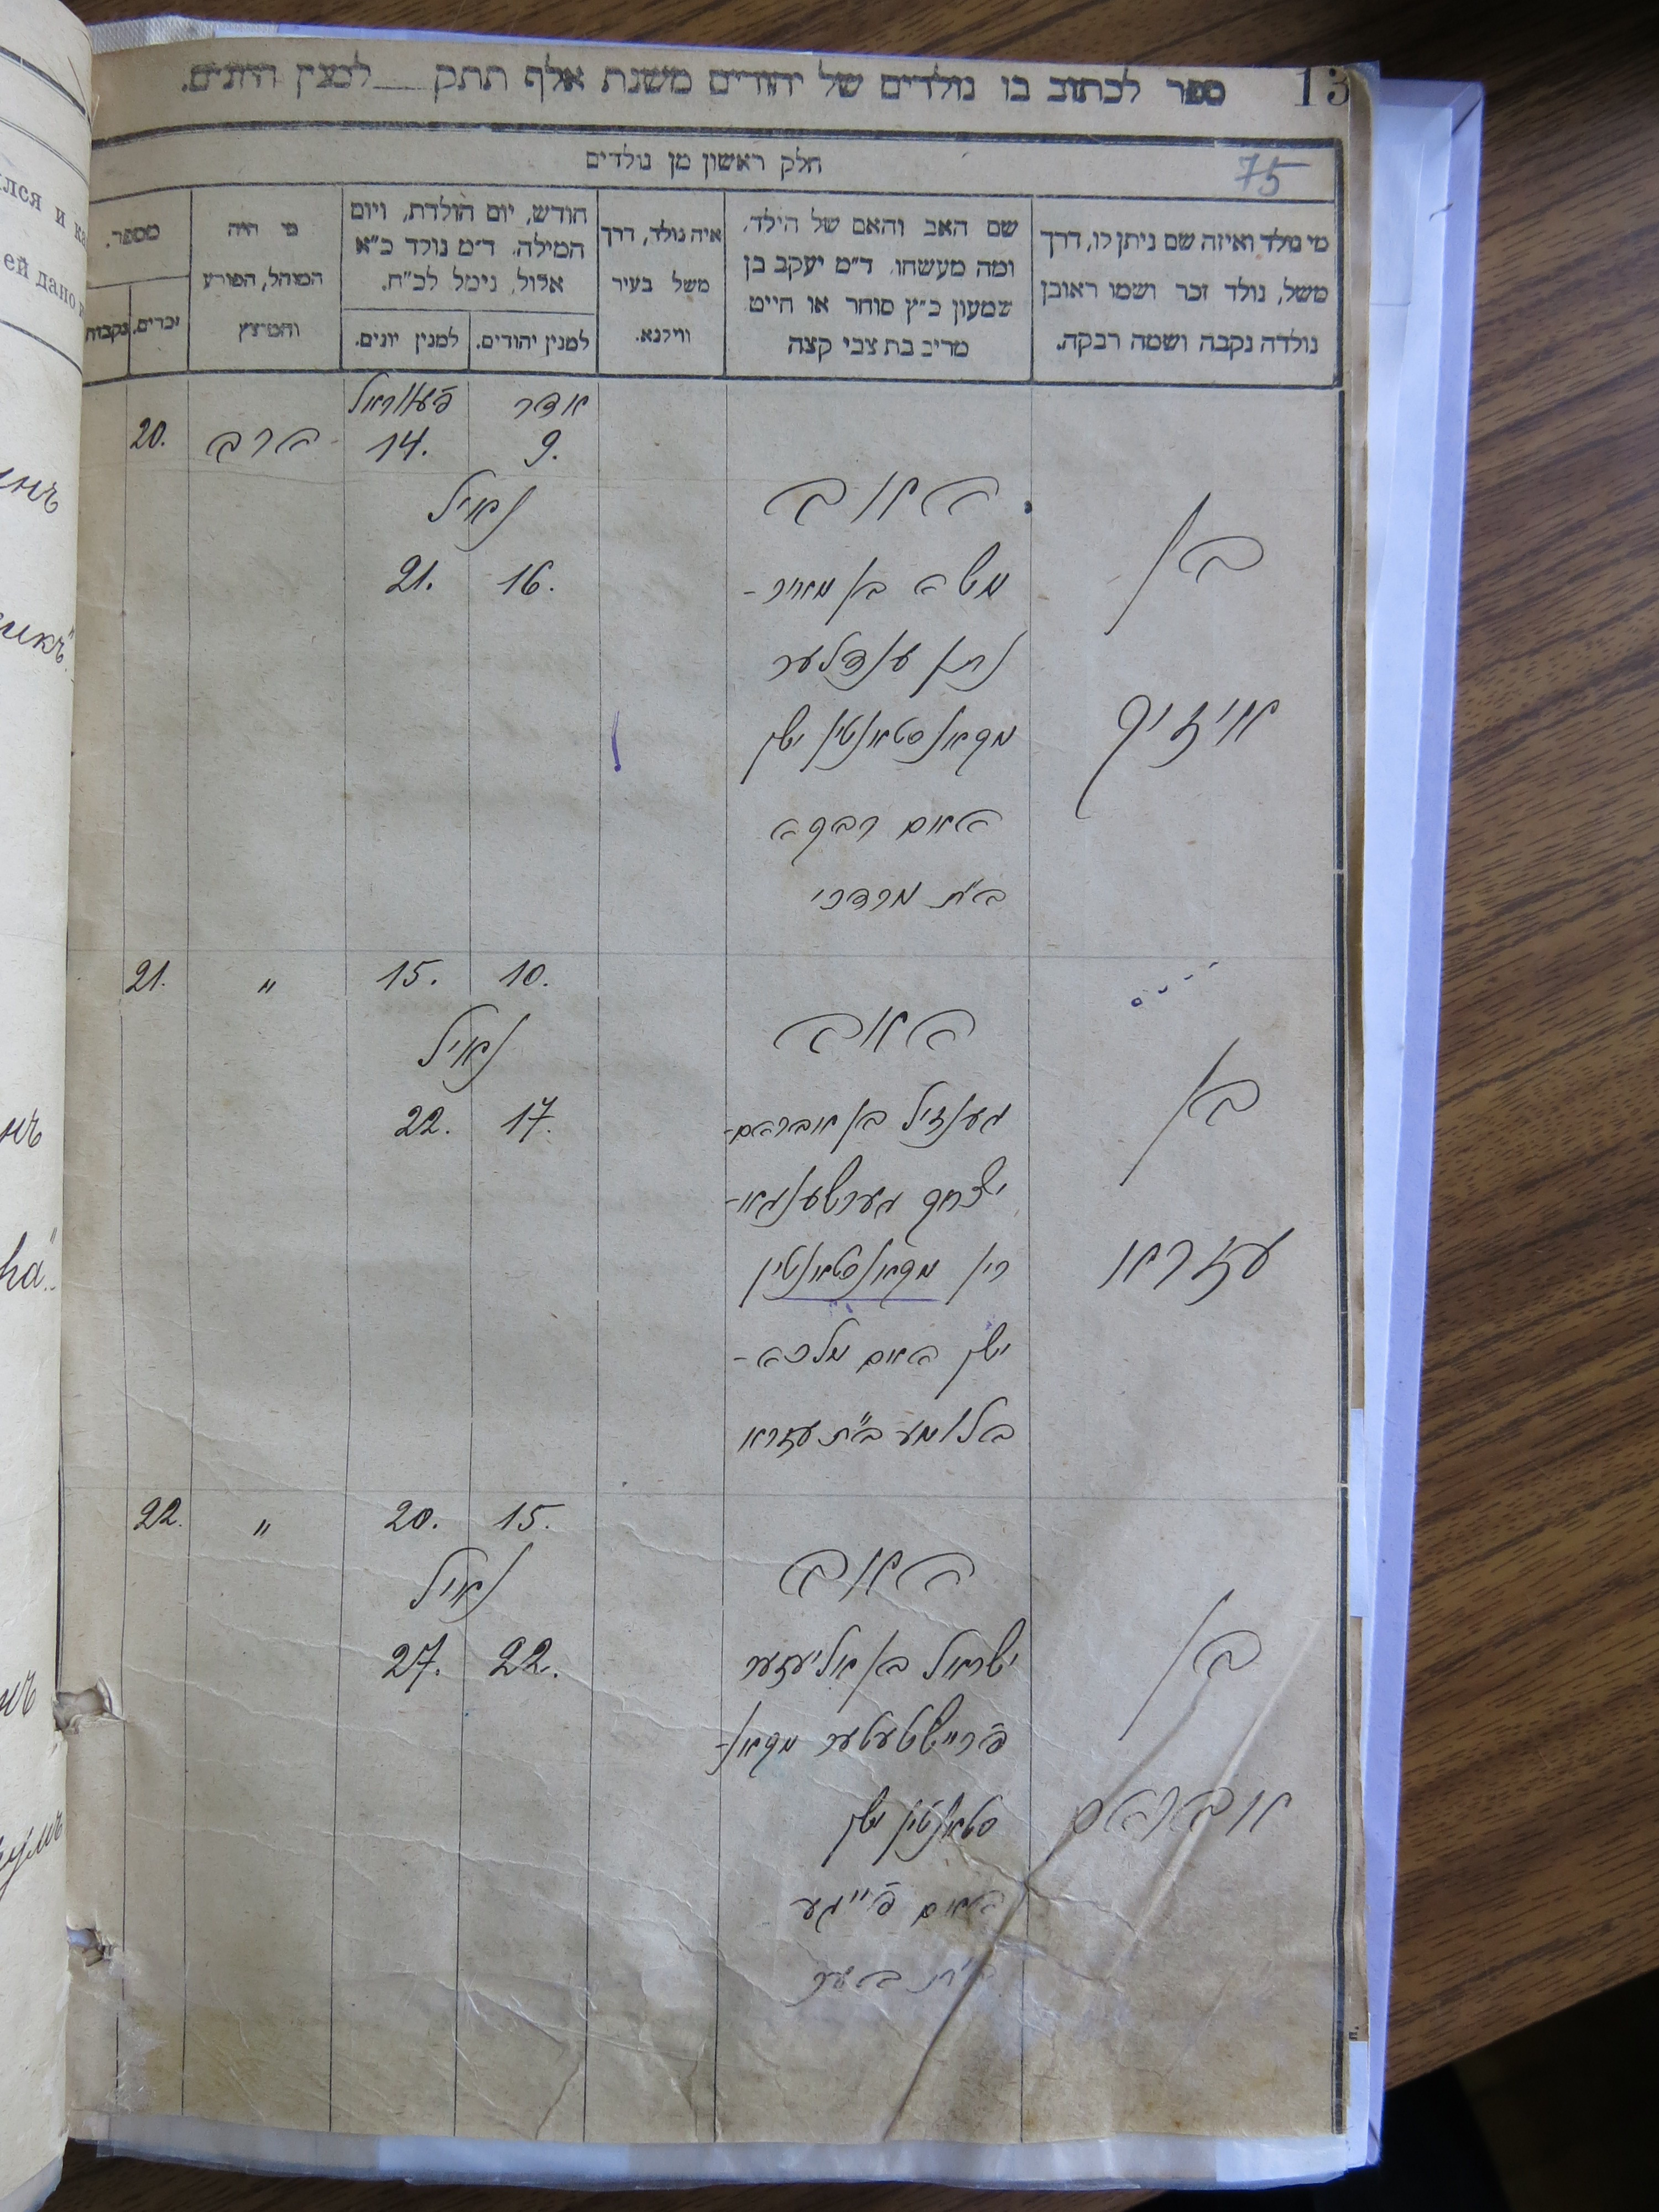 ספר לכתוב בו נולדים של יהודים משנת אלף תתק למנין היונים.
13
75
חלק ראשון מן נולדים
מי נולד ואיזה שם ניתן לו, דרך
משל, נולד זכר ושמו ראובן
נולדה נקבה ושמה רבקה.
שם האב והאם של הילד,
ומה מעשהו. ד״מ יעקב בן
שמעון כ״ץ סוחר או חייט
מרים בת צבי קצה
איה נולד, דרך
משל בעיר
ווילנא.
חודש, יום הולדת, ויום
המילה. ד״מ נולד כ״א
אלול, נימל לכ״ח.
למנין יהודים.
למנין יונים.
מי היה
המוהל, הפורע
והמוצץ
מספר.
זכרים.
נקבות
אדר
פעווראל
20.
הרב
14.
9.
נמול
21.
16.
בן
אויזיק
האב
משה בן מאיר-
נתן ענדלער
מקאנסטאנטין ישן
האם רבקה
ב״ת מרדכי
21.
״
15.
10.
נמול
22.
17.
בן
עזרא
האב
מענדיל בן אברהם-
יצחק גערשענגאו-
רין מקאנסטאנטין
ישן האם מלכה-
באלומע ב״ת עזרא
22.
״
20.
15.
נמול
27.
22.
בן
אברהם
האב
ישראל בן אליעזער
פריישטעטער מקאנ-
סטאנטין ישן
האם פייגע
ב״ת בער